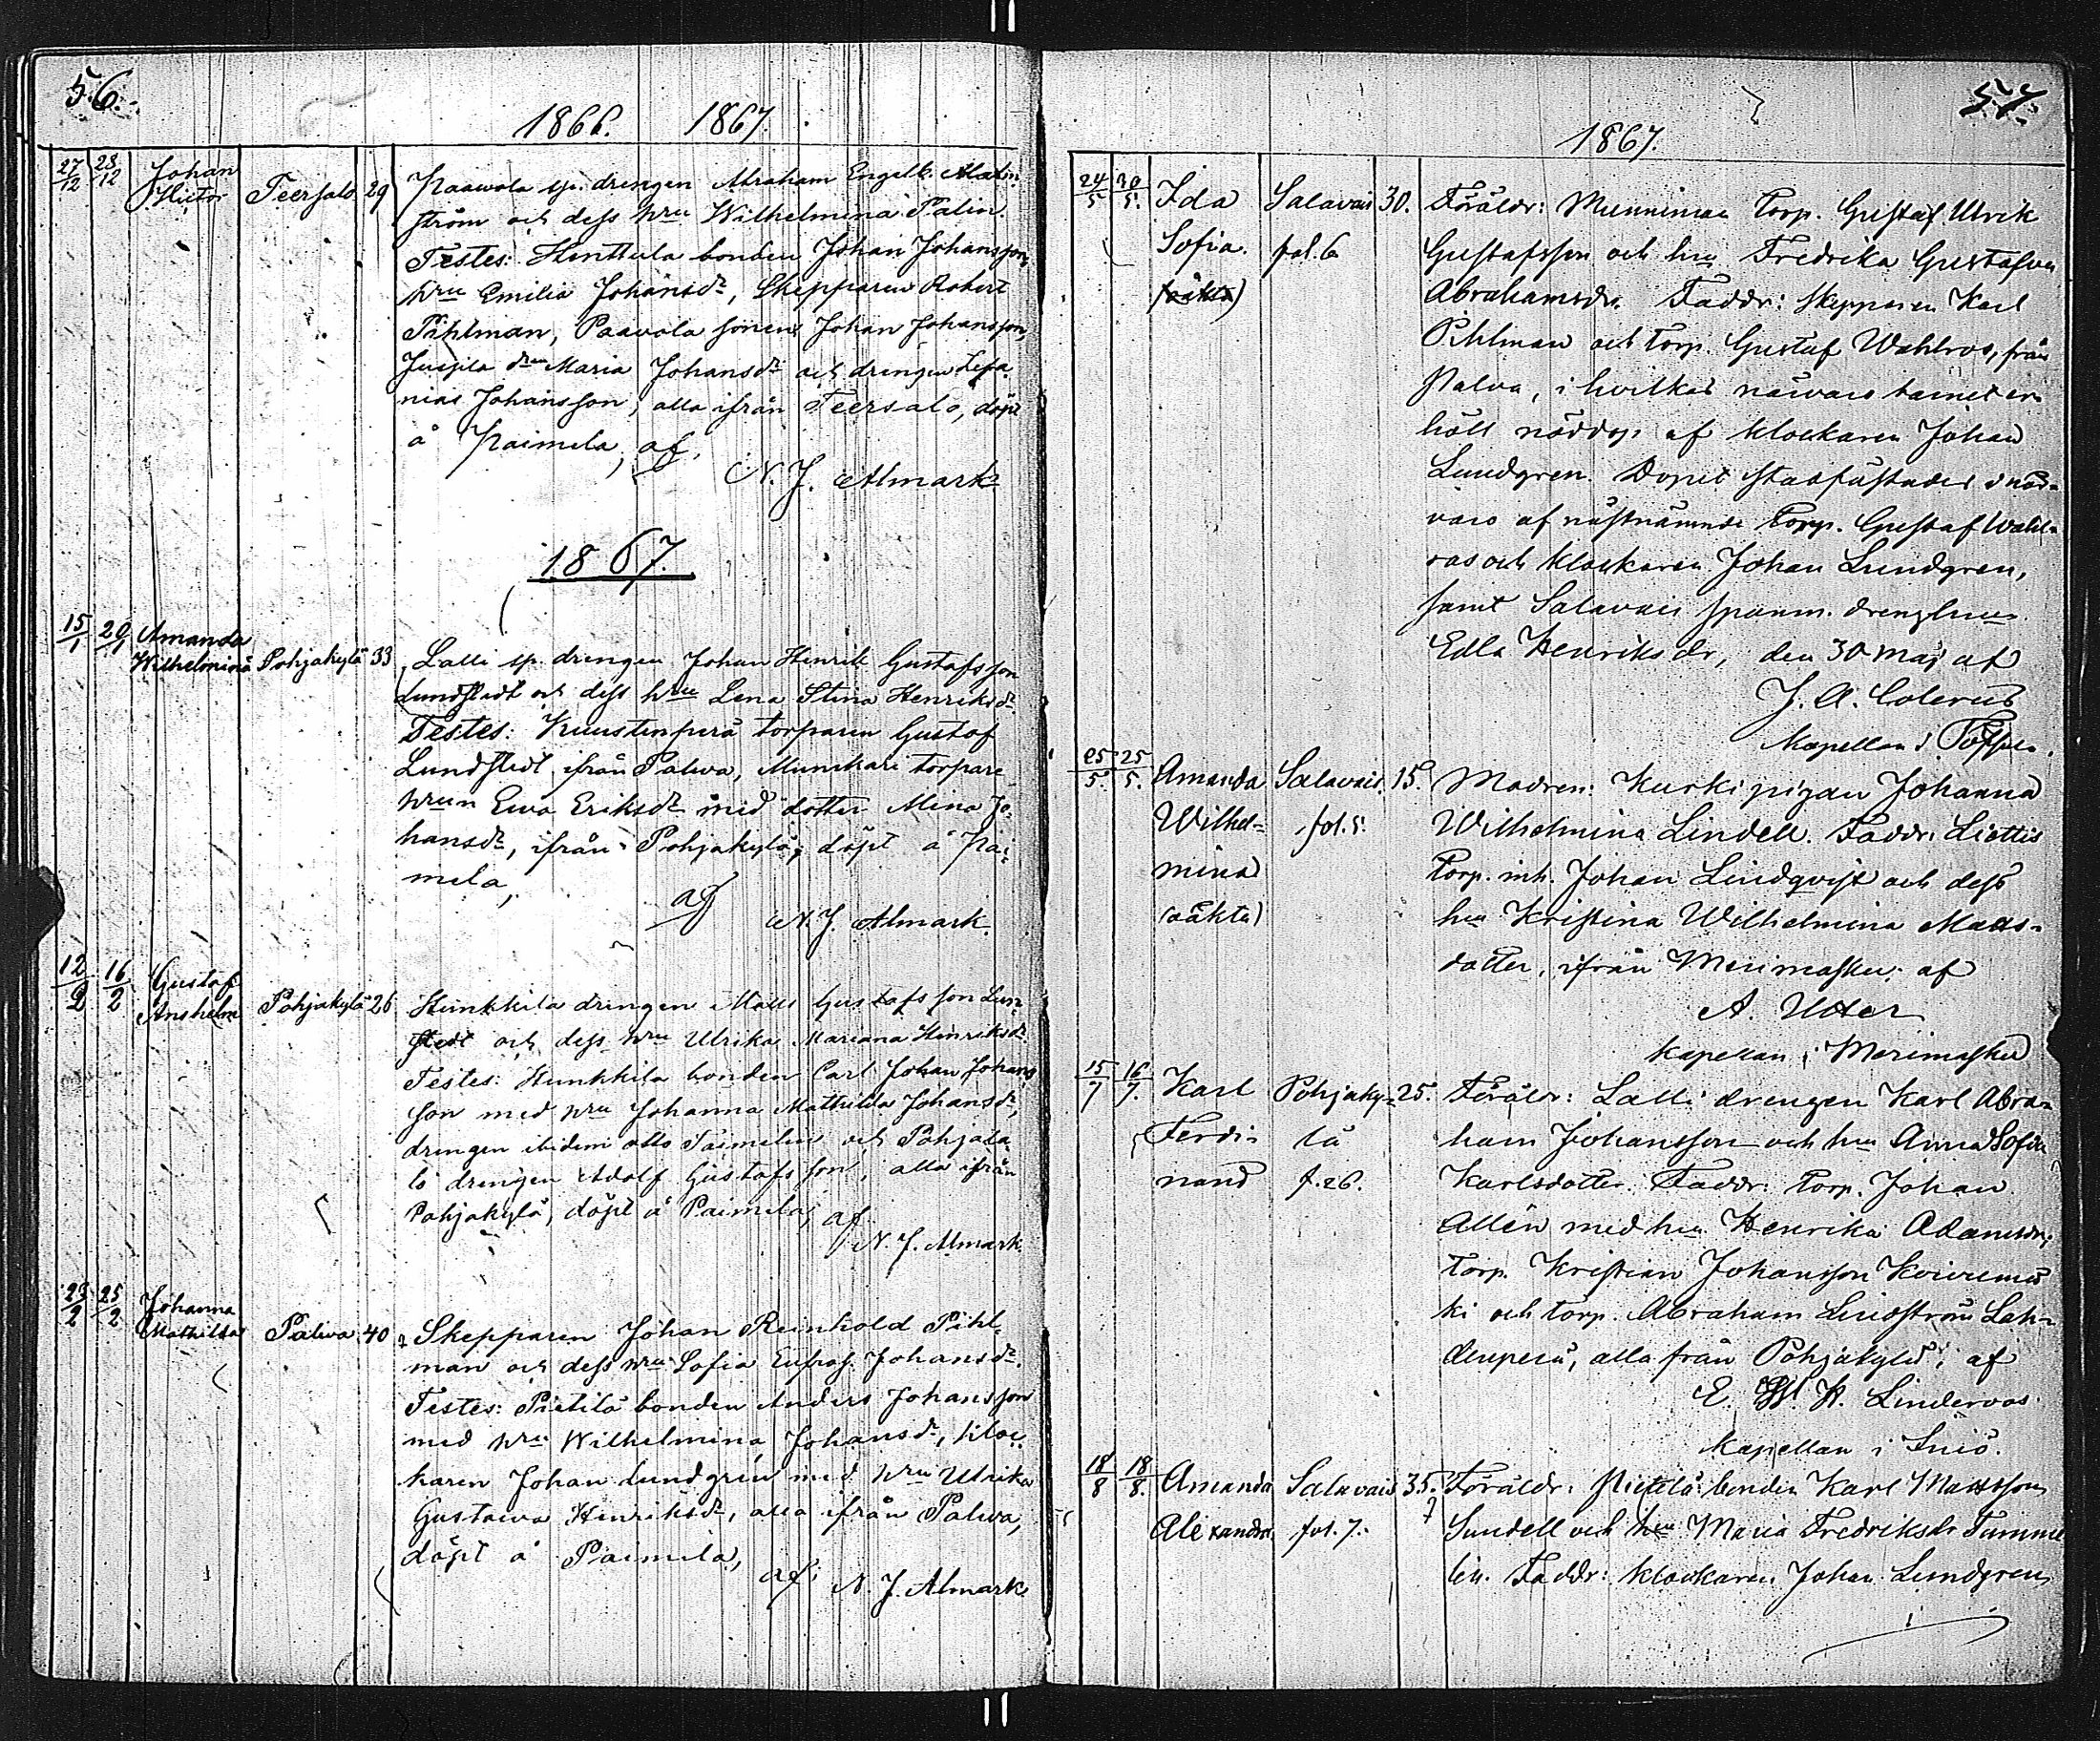 56.
1866. 1867.
27/12 28/12 Johan Teersalo 29 Paavola sp. drengen Abraham Engelb. Malm-
Victor ström och dess hru Wilhelmina Palin.
Testes: Hinttula bonden Johan Johansson,
hru Emilia Johansdr, Skepparen Robert
Pihlman, Paavola sonen Johan Johansson,
Johansdr och drengen Zefa-
nias Johansson, alla ifrån Teersalo, döpt
å Paimela, af
N. J. Almark
1867.
15/1 20/1 Amanda
Wilhelmina Pohjakylä 33 Lalli sp. drengen Johan Henrik Gustafsson
Lundstedt och dess hru Lena Stina Henriksdr.
Testes: Kuustenperä torparen Gustaf
Lundstedt ifrån Palwa, Munikari torpare
hrun Ewa Eriksdr med dotter Mina Jo-
hansdr, ifrån Pohjakylä, döpt å Pai-
mela,
af
N. J. Almark.
12/2 16/2 Gustaf
Anshelm Pohjakylä 26 Hunkkila drengen Matts Gustafsson Lun-
stedt och dess hru Ulrika Mariana Henriksdr.
Testes: Hunkkila bonden Carl Johan Johans
son med hru Johanna Mathilda Johansdr,
drengen ibidem Otto Paimelin och Pohjata-
lo drengen Adolf Gustafsson, alla ifrån
Pohjakylä, döpt å Paimela, af
N. J. Almark
23/2 25/2 Johanna
Mathilda Palwa 40 Skepparen Johan Reinhold Pihl-
man och dess hru Sofia Eufros. Johansdr.
Testes: Pietilä bonden Anders Johansson
med hru Wilhelmina Johansdr, kloc-
karen Johan Lundgren med hru Ulrika
Gustawa Henriksdr, alla ifrån Palwa,
döpt å Paimela,
af N. J. Almark
57.
1867.
24/5 30/5. Ida Salavais 30. Föräldr: Munninmaa Torp. Gustaf Ulrik
Sofia. fol. 6 Gustafsson och hru Fredrika Gustafva
(oäkta) Abrahamsdr. Faddr: Skepparen Karl
Pihlman och torp. Gustaf Wahlros, från
Palva, i hvilkas närvaro barnet er-
höll nöddop af klockaren Johan
Lundgren. Dopet stadfästades i när-
varo af nästnämnde Torp. Gustaf Wahl-
ros och klockaren Johan Lundgren,
samt Salavais spanm. drenghru
Edla Henriksdr, den 30 Maj af
J. A. Colerus
Kapellan i Töfsala.
25/5. 25/5. Amanda Salavais. 15. Modren: Kurki pigan Johanna
Wilhel- fol. 5. Wilhelmina Lindell. Faddr: Liettis
mina Torp. inh. Johan Lindqvist och dess
(oäkta) hru Kristina Wilhelmina Matts-
dotter, ifrån Merimasku. af
A. Utter
kapellan i Merimasku
15/7 16/7. Karl Pohjaky- 25. Föräldr: Lalli drengen Karl Abra-
Ferdi- lä ham Johansson och hru Anna Sofia
nand f. 26. Karlsdotter. Faddr: Torp. Johan
Allén med hru Henrika Adamsdr,
Torp. Kristian Johansson Koivumä
ki och torp. Abraham Lindström Leh-
denperä, alla från Pohjakylä, af
E. W. K. Lindroos
Kapellan i Iniö.
18/8 18/8. Amanda Salavais 35. Föräldr: Pietilä bonden Karl Mattsson
Alexandra fol. 7. Sundell och hru Maria Fredriksdr Tamme
lin. Faddr: klockaren Johan Lundgren